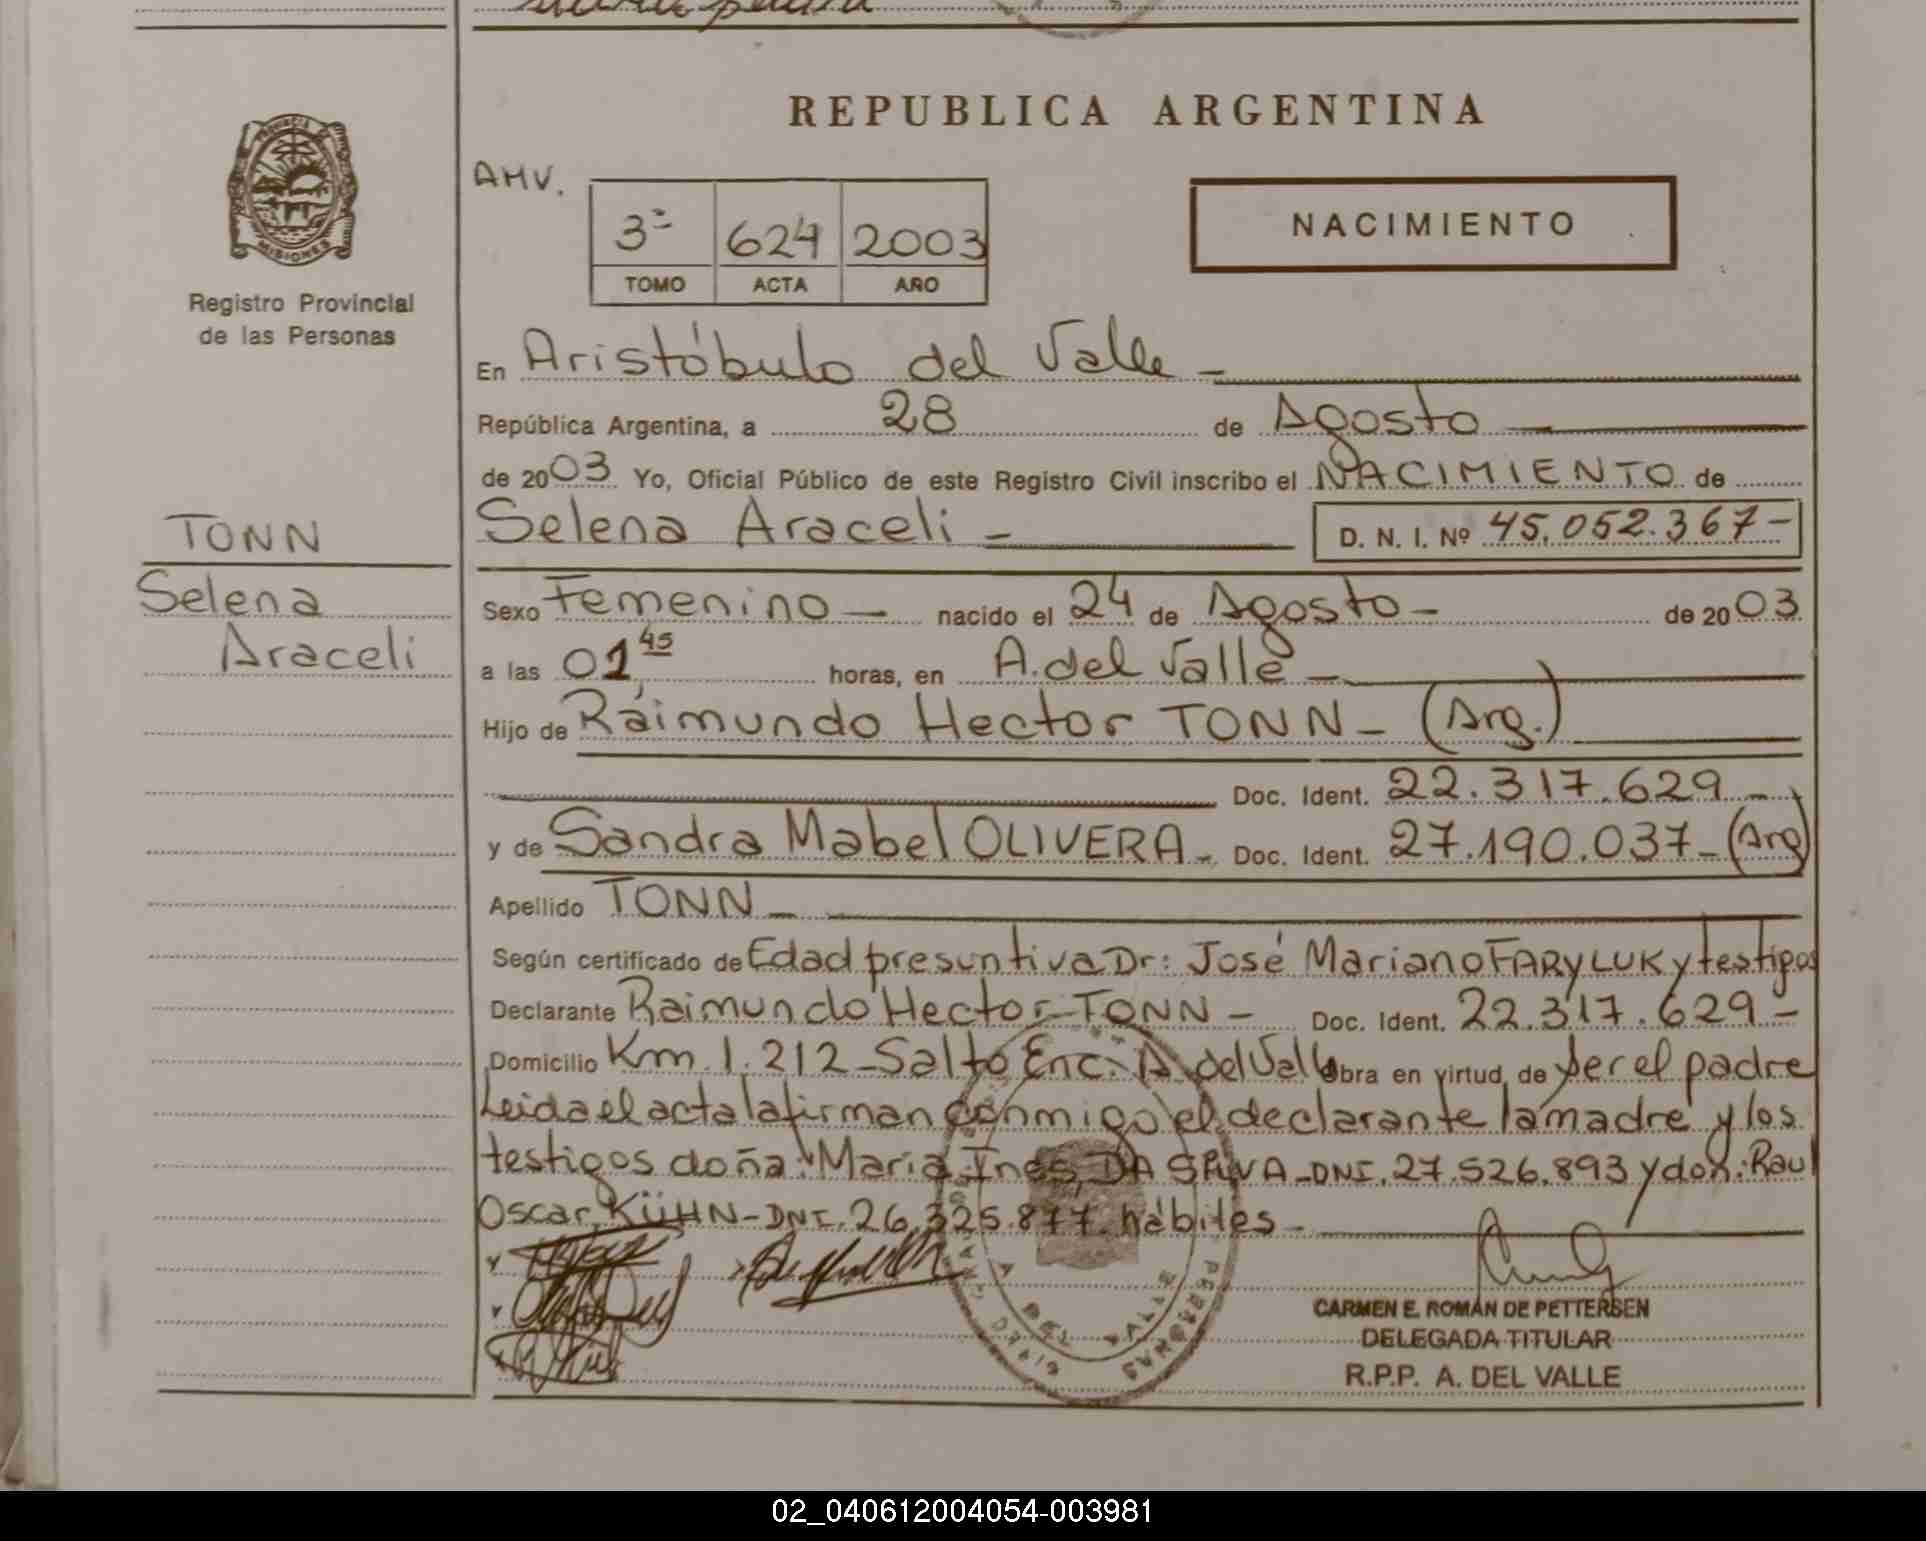 REPUBLICA ARGENTINA
AMV.
3º 624 2003
TOMO ACTA AÑO
NACIMIENTO
PROVINCIA DE
MISIONES
Registro Provincial
de las Personas
TONN
Selena
Araceli
En Aristóbulo del Valle -
República Argentina, a 28 de Agosto
de 2003 Yo, Oficial Público de este Registro Civil inscribo el NACIMIENTO de
Selena Araceli - D. N. I. Nº 45.052.367-
Sexo Femenino - nacido el 24 de Agosto - de 2003
a las 01,45 horas, en A. del Valle -
Hijo de Raimundo Hector TONN - (Arg.)
Doc. Ident. 22.317.629 -
y de Sandra Mabel OLIVERA - Doc. Ident. 27.190.037 - (Arg)
Apellido TONN -
Según certificado de Edad presuntiva Dr: José Mariano FARYLUK y testigos
Declarante Raimundo Hector TONN - Doc. Ident. 22.317.629 -
Domicilio Km. 1.212 - Salto Enc. A. del Valle Obra en virtud de ser el padre
Leida el acta la firman conmigo el declarante la madre y los
testigos doña: Maria Ines DA SILVA - DNI. 27.526.893 y don: Raul
Oscar KÜHN - DNI. 26.325.877. hábiles -
CARMEN E. ROMÁN DE PETTERSEN
DELEGADA TITULAR
R.P.P. A. DEL VALLE
A. DEL VALLE
PERSONAS
02_040612004054-003981